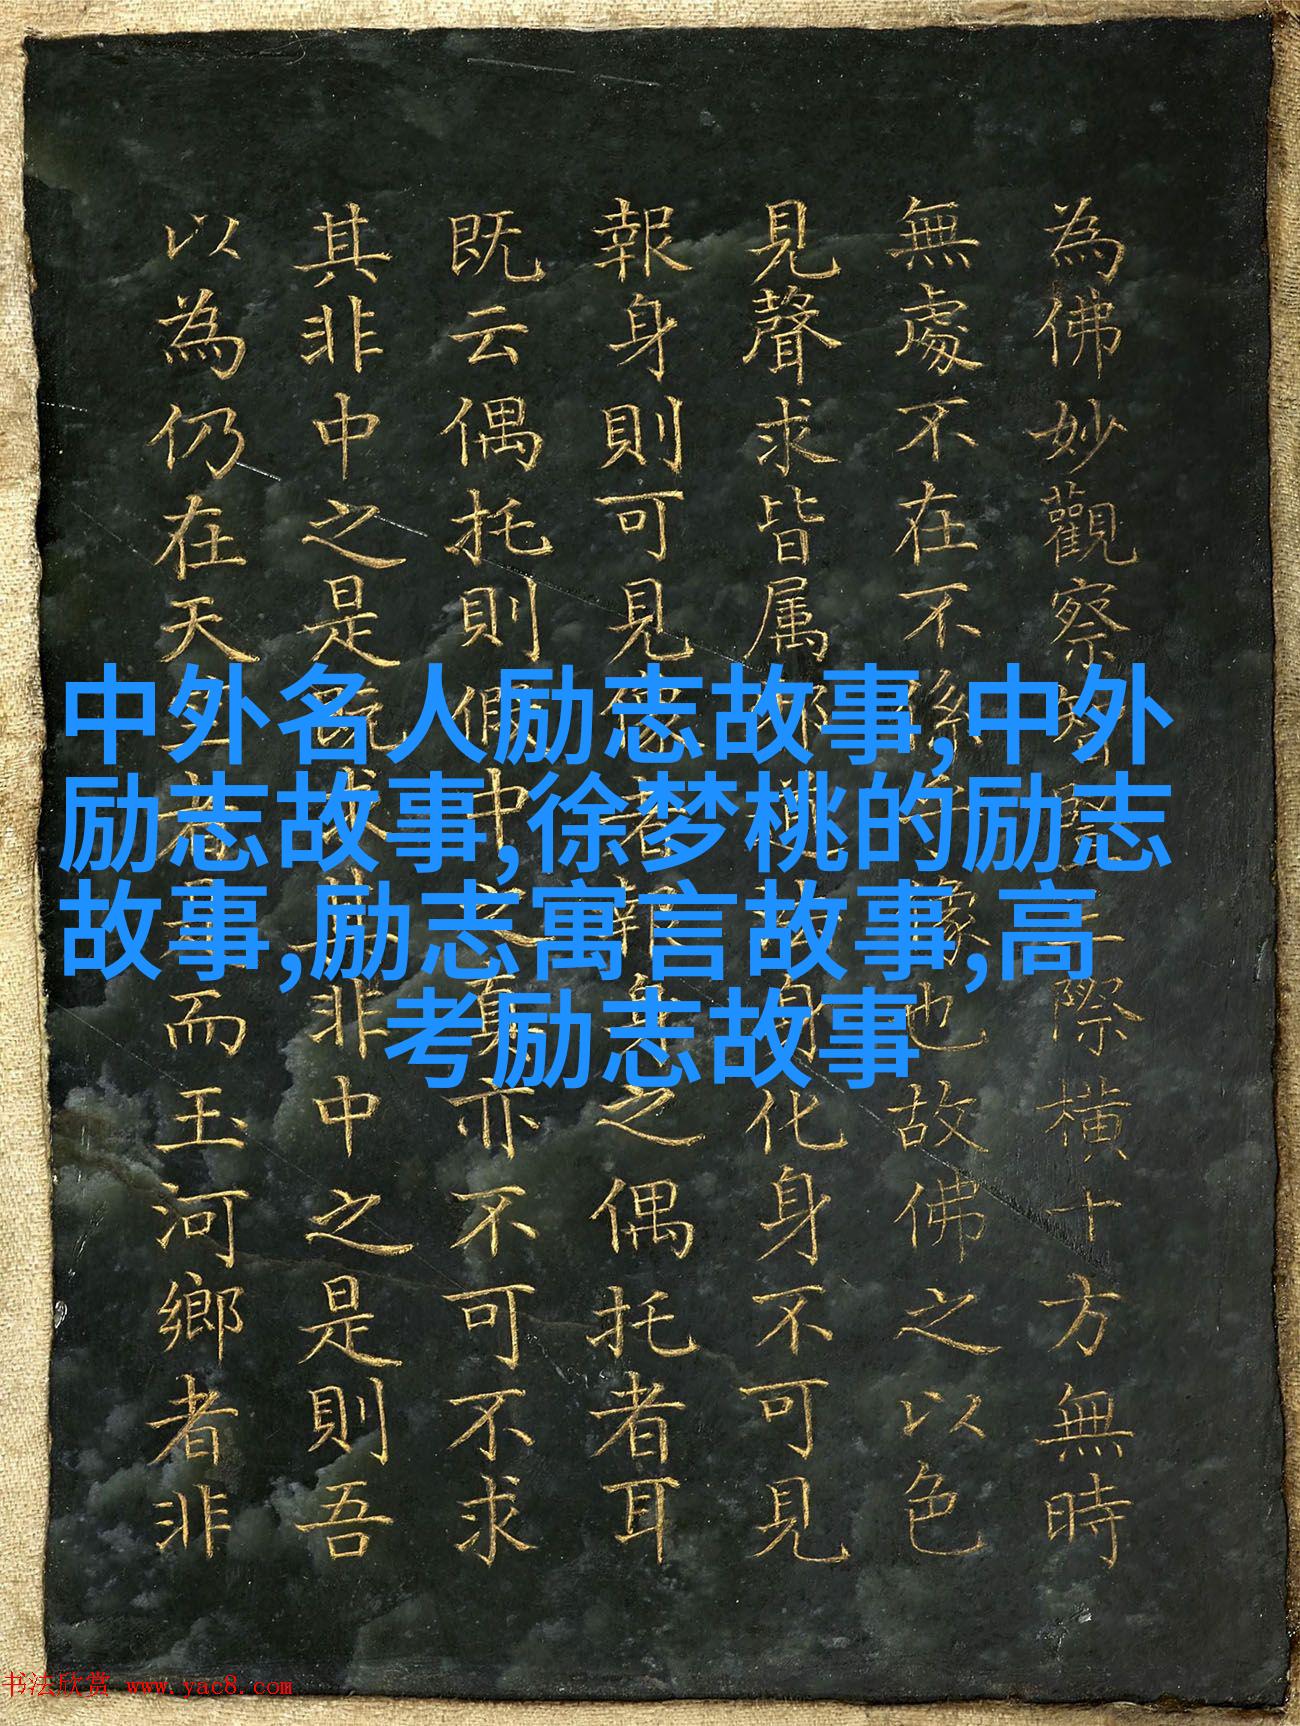 為佛妙觀察際橫十方無時
無處不在不也故佛之以色
見聲求皆属邪身化身不可見
報身則可見者報身之偶托者耳
既云偶托則假中之真亦不可不求
其非中之是既求非中之是則吾
以為仍在天者而玉河鄉者非
中外名人励志故事,中外
励志故事,徐梦桃的励志
故事,励志寓言故事,高
考励志故事
书法欣赏 www.yac8.com